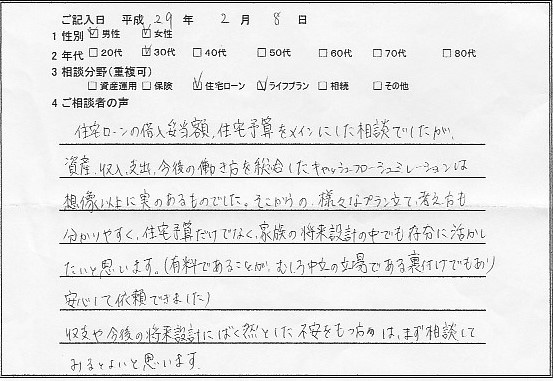 ご記入日 平成 29 年 2 月 8 日
1 性別 ☑男性 ☑女性
2 年代 □20代 ☑30代 □40代 □50代 □60代 □70代 □80代
3 相談分野(重複可)
□資産運用 □保険 ☑住宅ローン ☑ライフプラン □相続 □その他
4 ご相談者の声
住宅ローンの借入妥当額、住宅予算をメインにした相談でしたが、
資産、収入、支出、今後の働き方を総合したキャッシュフローシュミレーションは
想像以上に実のあるものでした。そこからの、様々なプラン立て、考え方も
分かりやすく、住宅予算だけでなく、家族の将来設計の中でも存分に活かし
たいと思います。(有料であることが、むしろ中立の立場である裏付けでもあり
安心して依頼できました)
収支や今後の将来設計にばく然とした不安をもつ方は、まず相談して
みるとよいと思います。